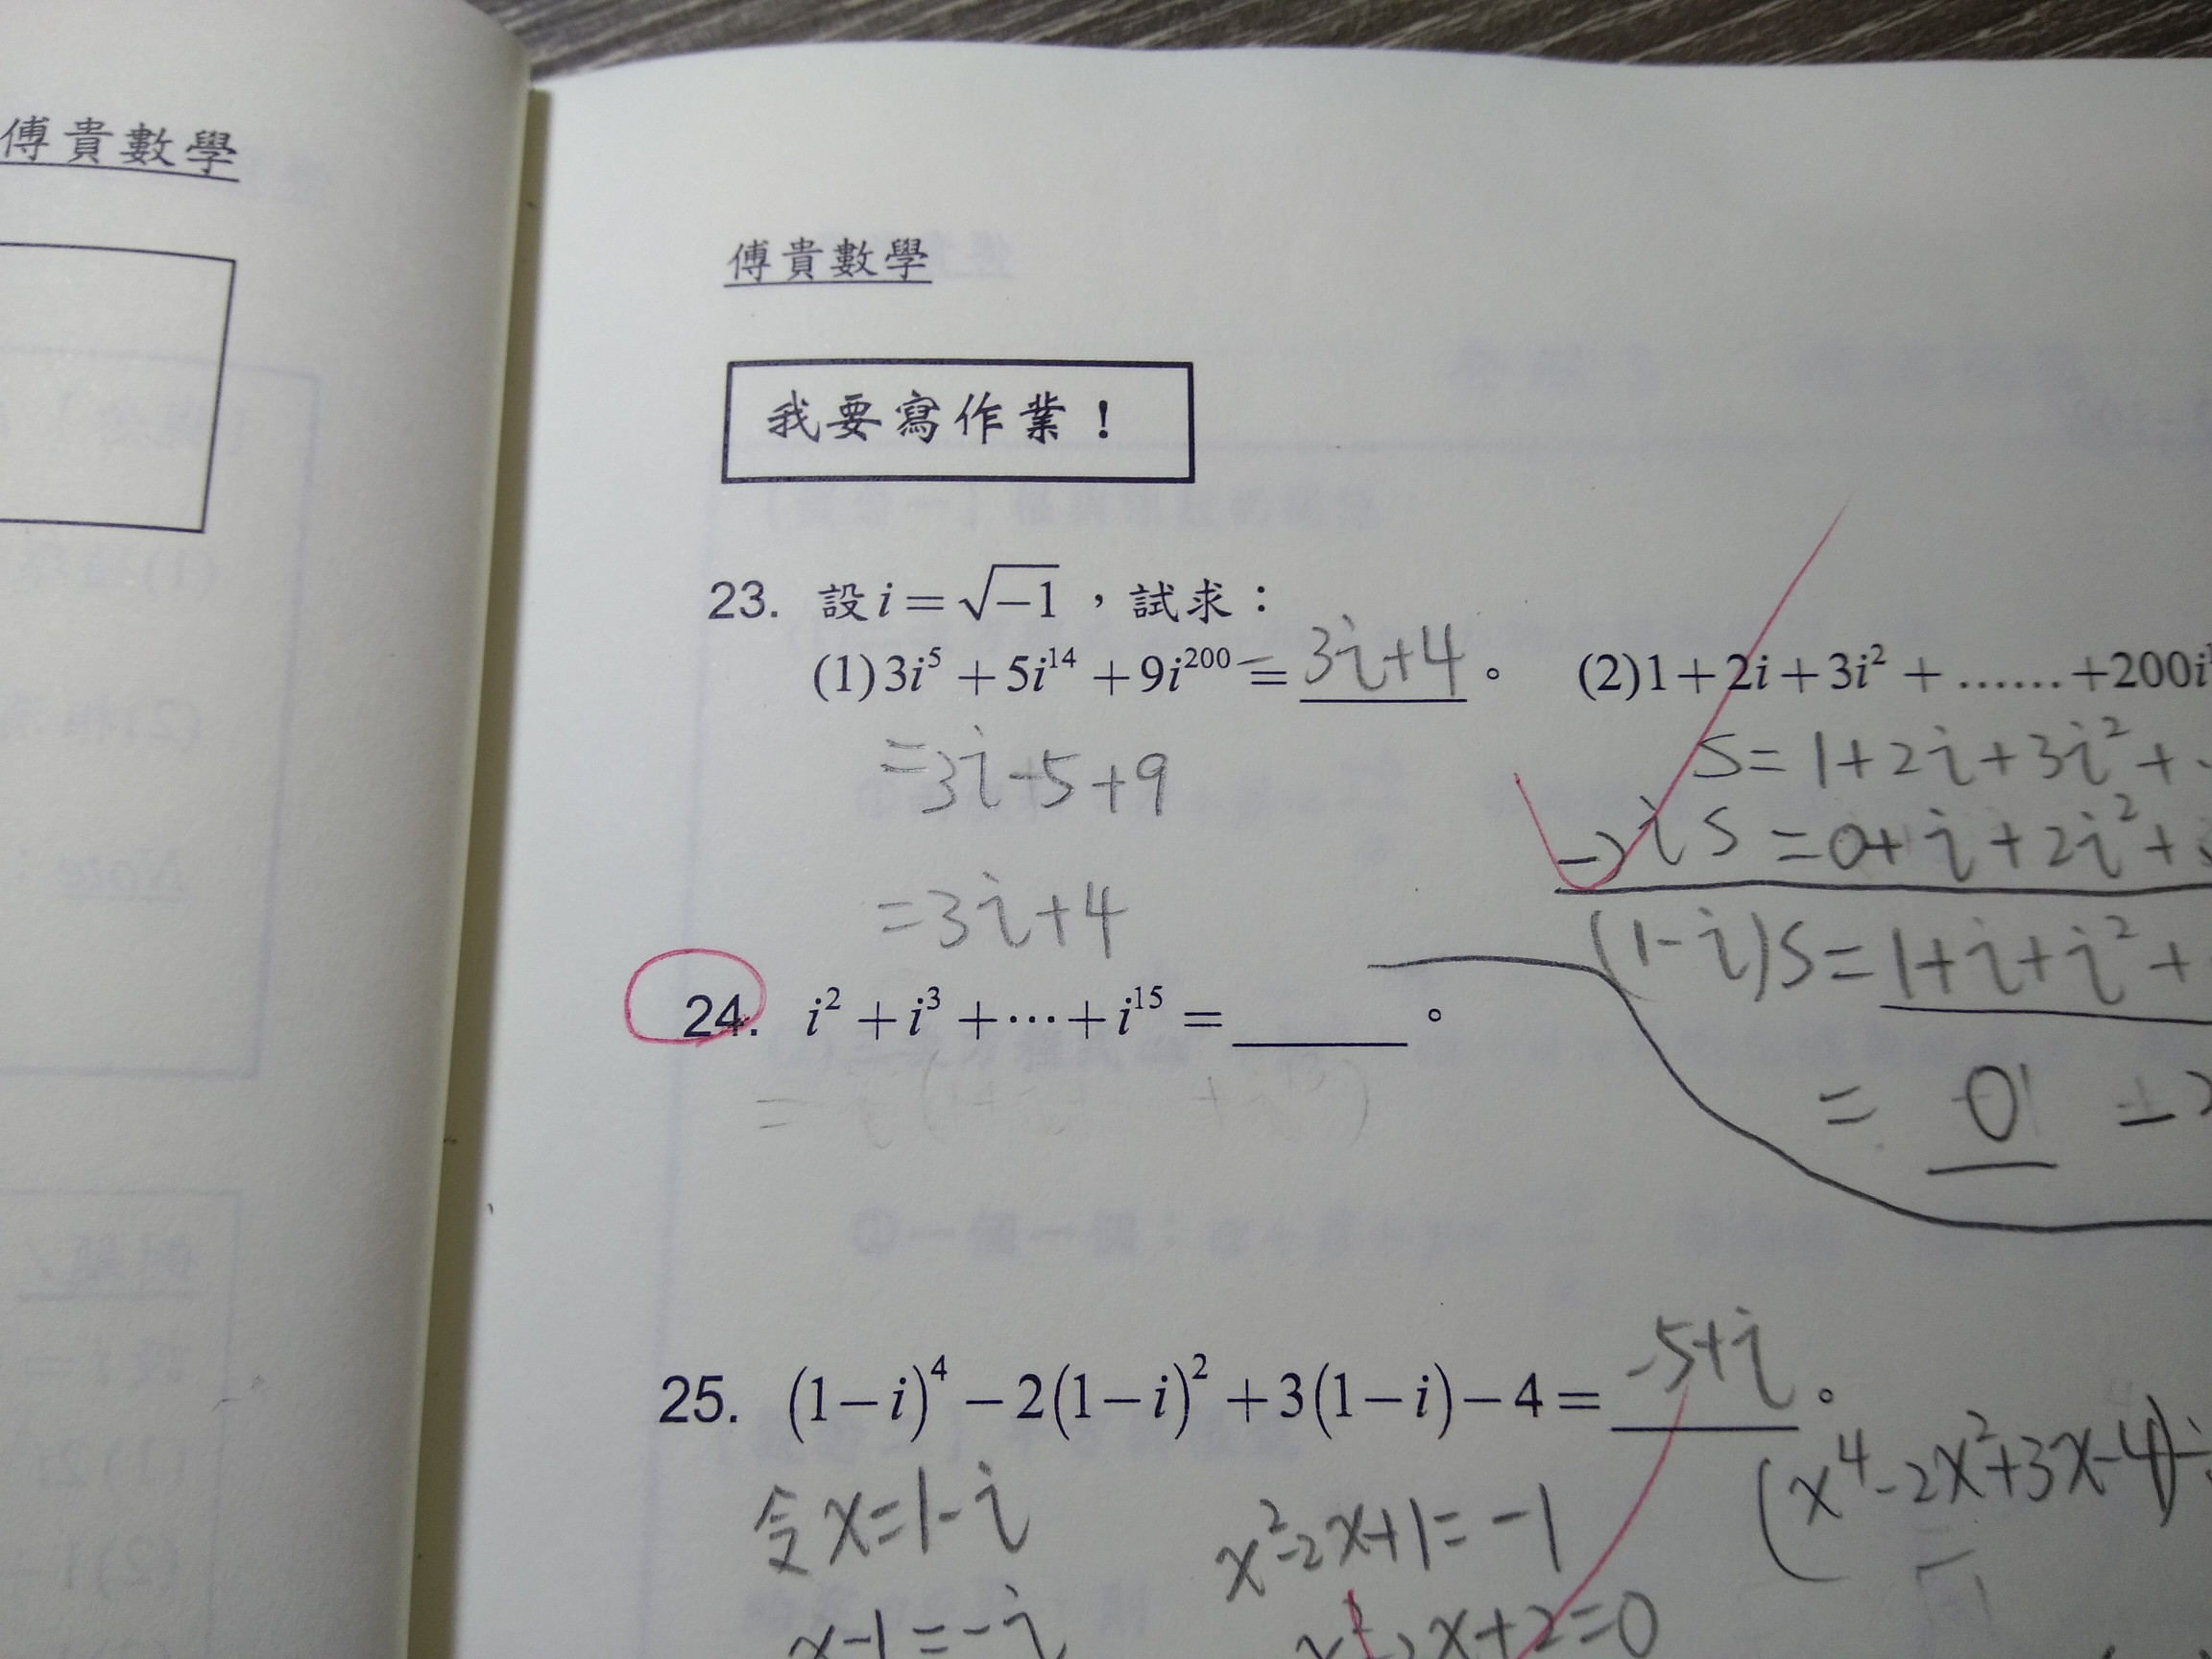 傅貴數學
傅貴數學
我要寫作業！
23. 設 i = √−1 ，試求：
(1) 3i⁵ + 5i¹⁴ + 9i²⁰⁰ = 3i+4 。 (2) 1 + 2i + 3i² + …… + 200i
=3i-5+9
=3i+4
S = 1+2i+3i²+
-) iS = 0+i+2i²+
(1-i)S = 1+i+i²+
= 0
24. i² + i³ + ⋯ + i¹⁵ = ______ 。
25. (1−i)⁴ − 2(1−i)² + 3(1−i) − 4 = -5+i 。
令 x=1-i
x-1=-i
x²-2x+1=-1
x²-2x+2=0
(x⁴-2x²+3x-4)
Note